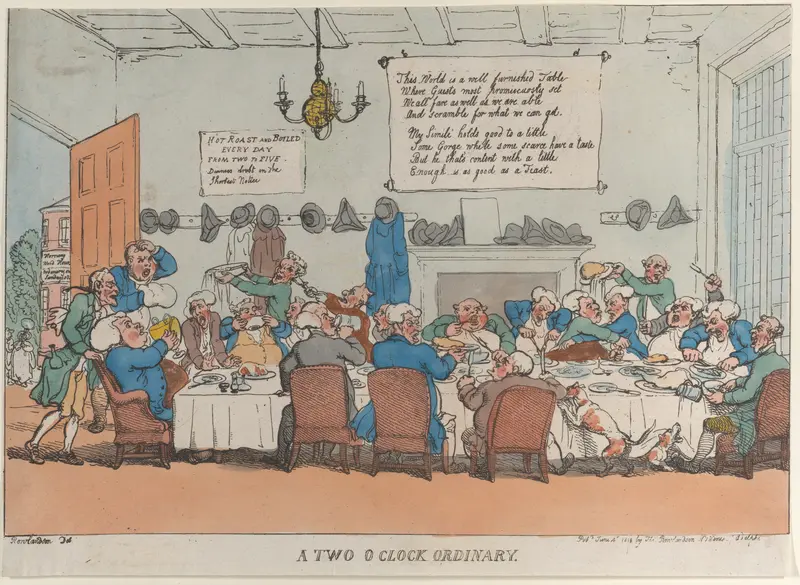 This World is a well furnished Table
Where Guests most promiscuously set
We all fare as well as we are able
And scramble for what we can get.
My Simile holds good to a tittle
Some Gorge while some scarce have a taste
But he that's content with a little
Enough is as good as a Feast.
HOT ROAST AND BOILED
EVERY DAY
FROM TWO TO FIVE.
Dinners drest on the
Shortest Notice
Rowlandson Del
by Tho. Rowlandson
A TWO O CLOCK ORDINARY.